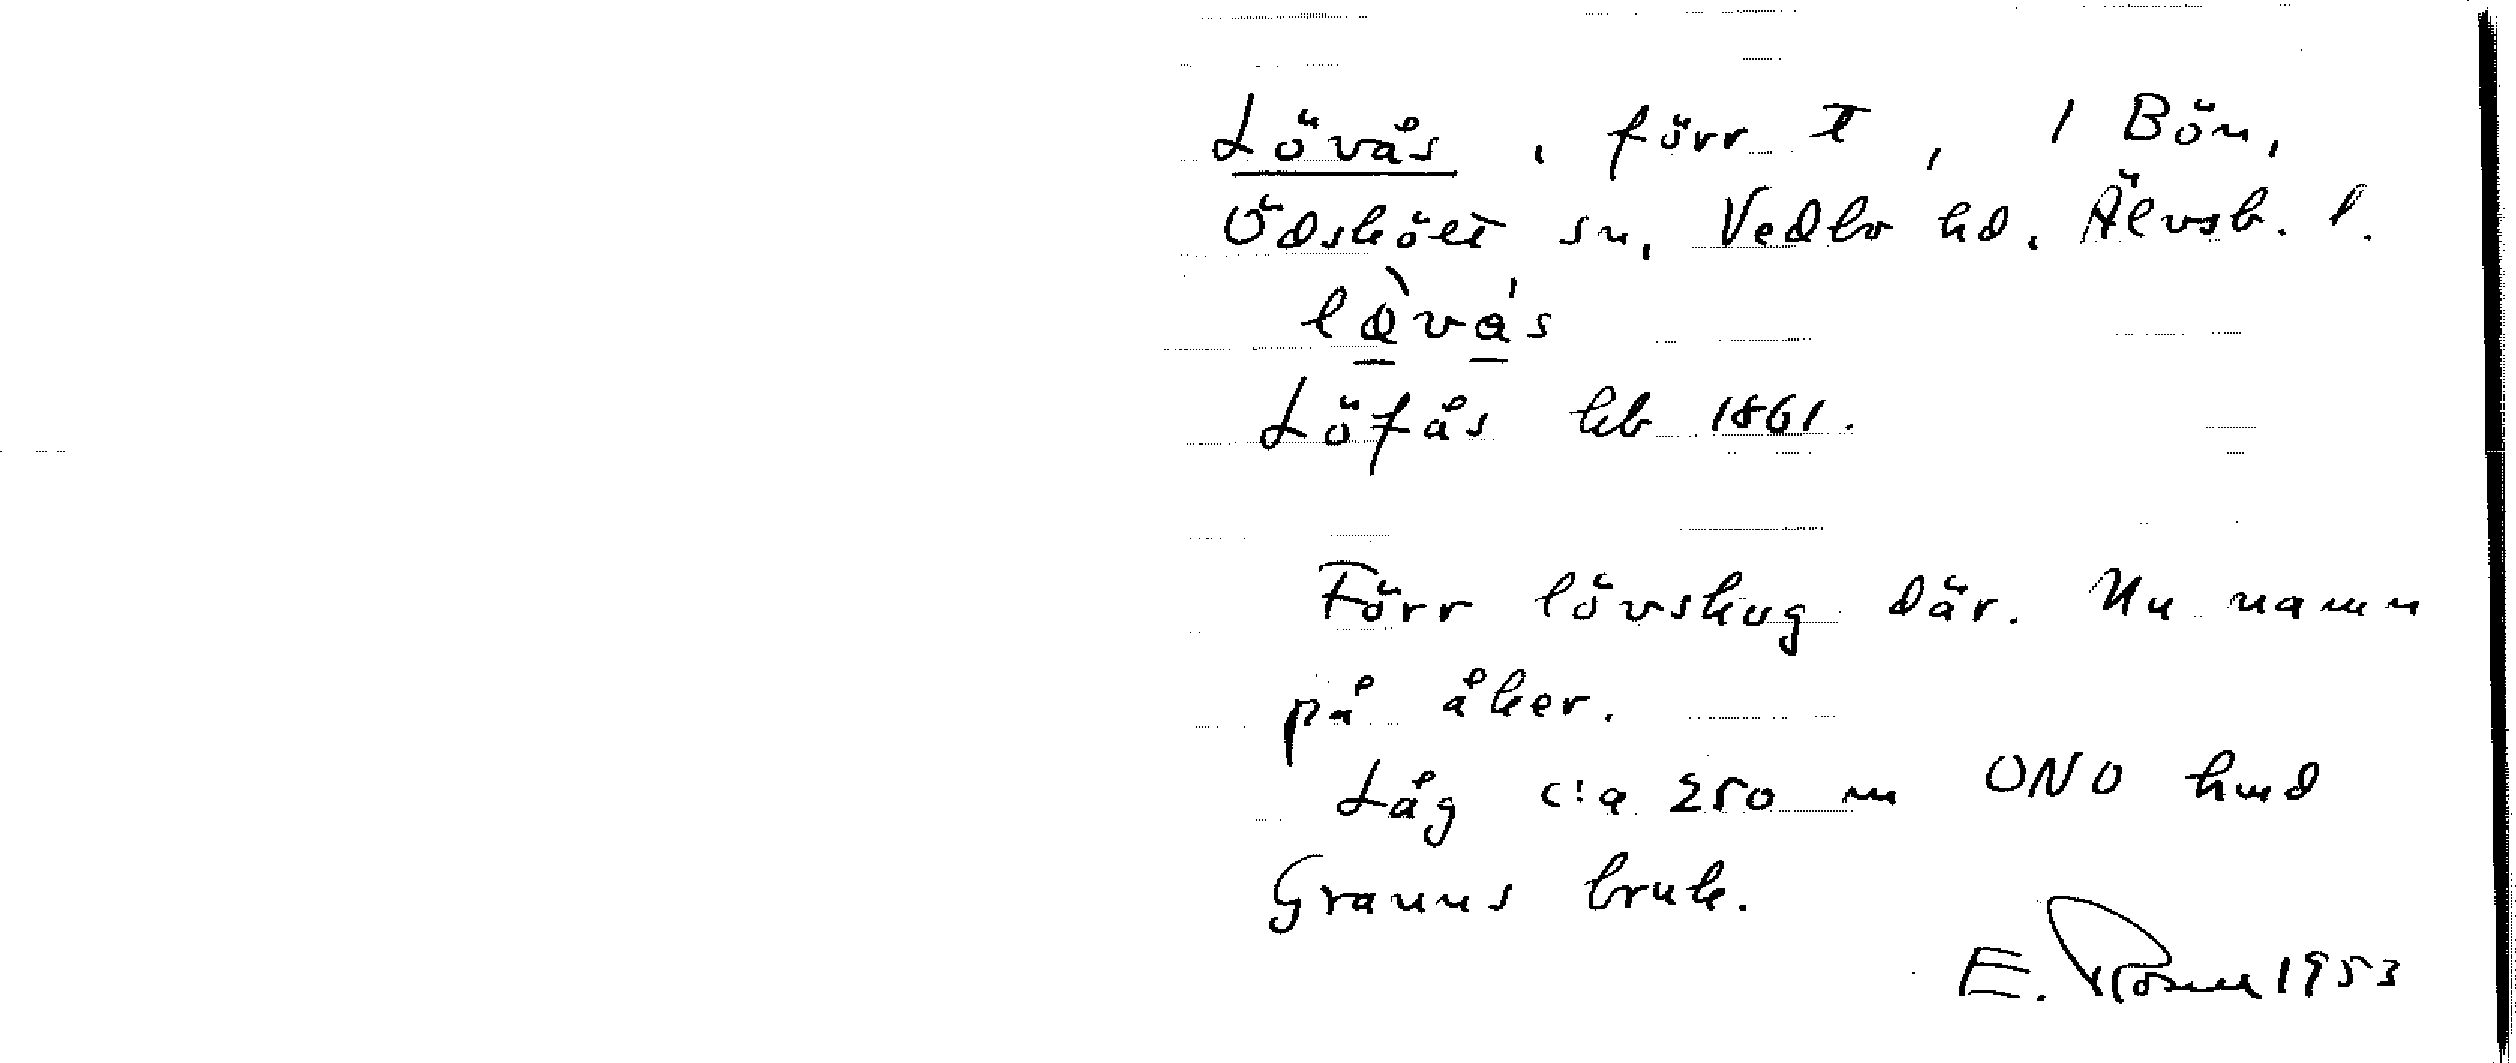 Lövås, förr t, 1 Bön,
Ödskölt sn, Vedbo hd, Älvsb. l.
Löfås hb 1861.
Förr lövskog där. Nu namn
på åker.
Låg c:a 250 m ONO
Granns bruk.
E. 1953